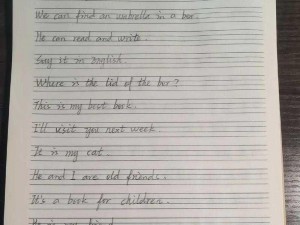 We can find an umbrella in a box.
He can read and write.
Say it in English.
Where is the lid of the box?
This is my best book.
I'll visit you next week.
It is my cat.
He and I are old friends.
It's a book for children.
He is